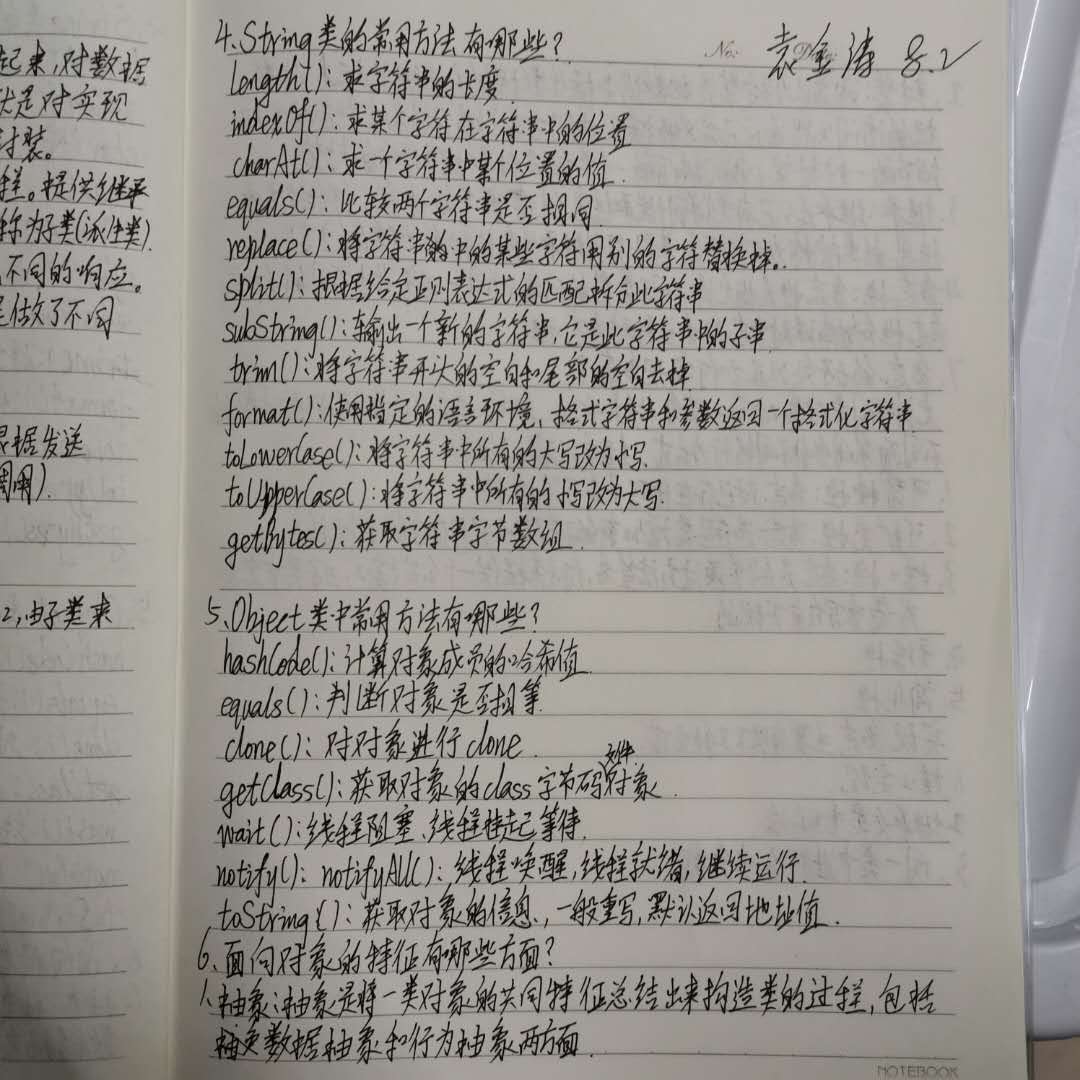 起来,对数据
就是对实现
封装。
程。提供继承
称为子类(派生类).
不同的响应。
是做了不同
根据发送
调用).
2,由子类来
No:
袁金涛 8.2
4、String类的常用方法有哪些?
length(): 求字符串的长度
indexOf(): 求某个字符在字符串中的位置
charAt(): 求一个字符串中某个位置的值.
equals(): 比较两个字符串是否相同
replace(): 将字符串的中的某些字符用别的字符替换掉。
split(): 根据给定正则表达式的匹配拆分此字符串
subString(): 输出一个新的字符串,它是此字符串中的子串.
trim(): 将字符串开头的空白和尾部的空白去掉
format(): 使用指定的语言环境、格式字符串和参数返回一个格式化字符串.
toLowerCase(): 将字符串中所有的大写改为小写.
toUpperCase(): 将字符串中所有的小写改为大写.
getBytes(): 获取字符串字节数组.
5、Object类中常用方法有哪些?
hashCode(): 计算对象成员的哈希值
equals(): 判断对象是否相等.
clone(): 对对象进行clone.
getClass(): 获取对象的class字节码文件对象.
wait(): 线程阻塞、线程挂起等待.
notify(): notifyAll(): 线程唤醒,线程就绪,继续运行.
toString(): 获取对象的信息,一般重写,默认返回地址值.
6、面向对象的特征有哪些方面?
1、抽象:抽象是将一类对象的共同特征总结出来构造类的过程,包括
数据抽象和行为抽象两方面.
NOTEBOOK